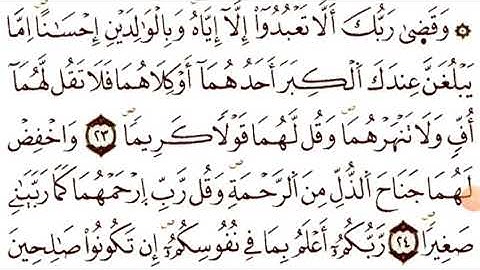 ۞ وَقَضٰى رَبُّكَ أَلَّا تَعْبُدُوٓا۟ إِلَّآ إِيَّاهُ وَبِالْوَٰلِدَيْنِ إِحْسَٰنًا إِمَّا
يَبْلُغَنَّ عِندَكَ الْكِبَرَ أَحَدُهُمَآ أَوْ كِلَاهُمَا فَلَا تَقُل لَّهُمَا
أُفٍّ وَلَا تَنْهَرْهُمَا وَقُل لَّهُمَا قَوْلًا كَرِيمًا ٢٣ وَاخْفِضْ
لَهُمَا جَنَاحَ الذُّلِّ مِنَ الرَّحْمَةِ وَقُل رَّبِّ ارْحَمْهُمَا كَمَا رَبَّيَانِي
صَغِيرًا ٢٤ رَّبُّكُمْ أَعْلَمُ بِمَا فِي نُفُوسِكُمْ إِن تَكُونُوا۟ صَٰلِحِينَ